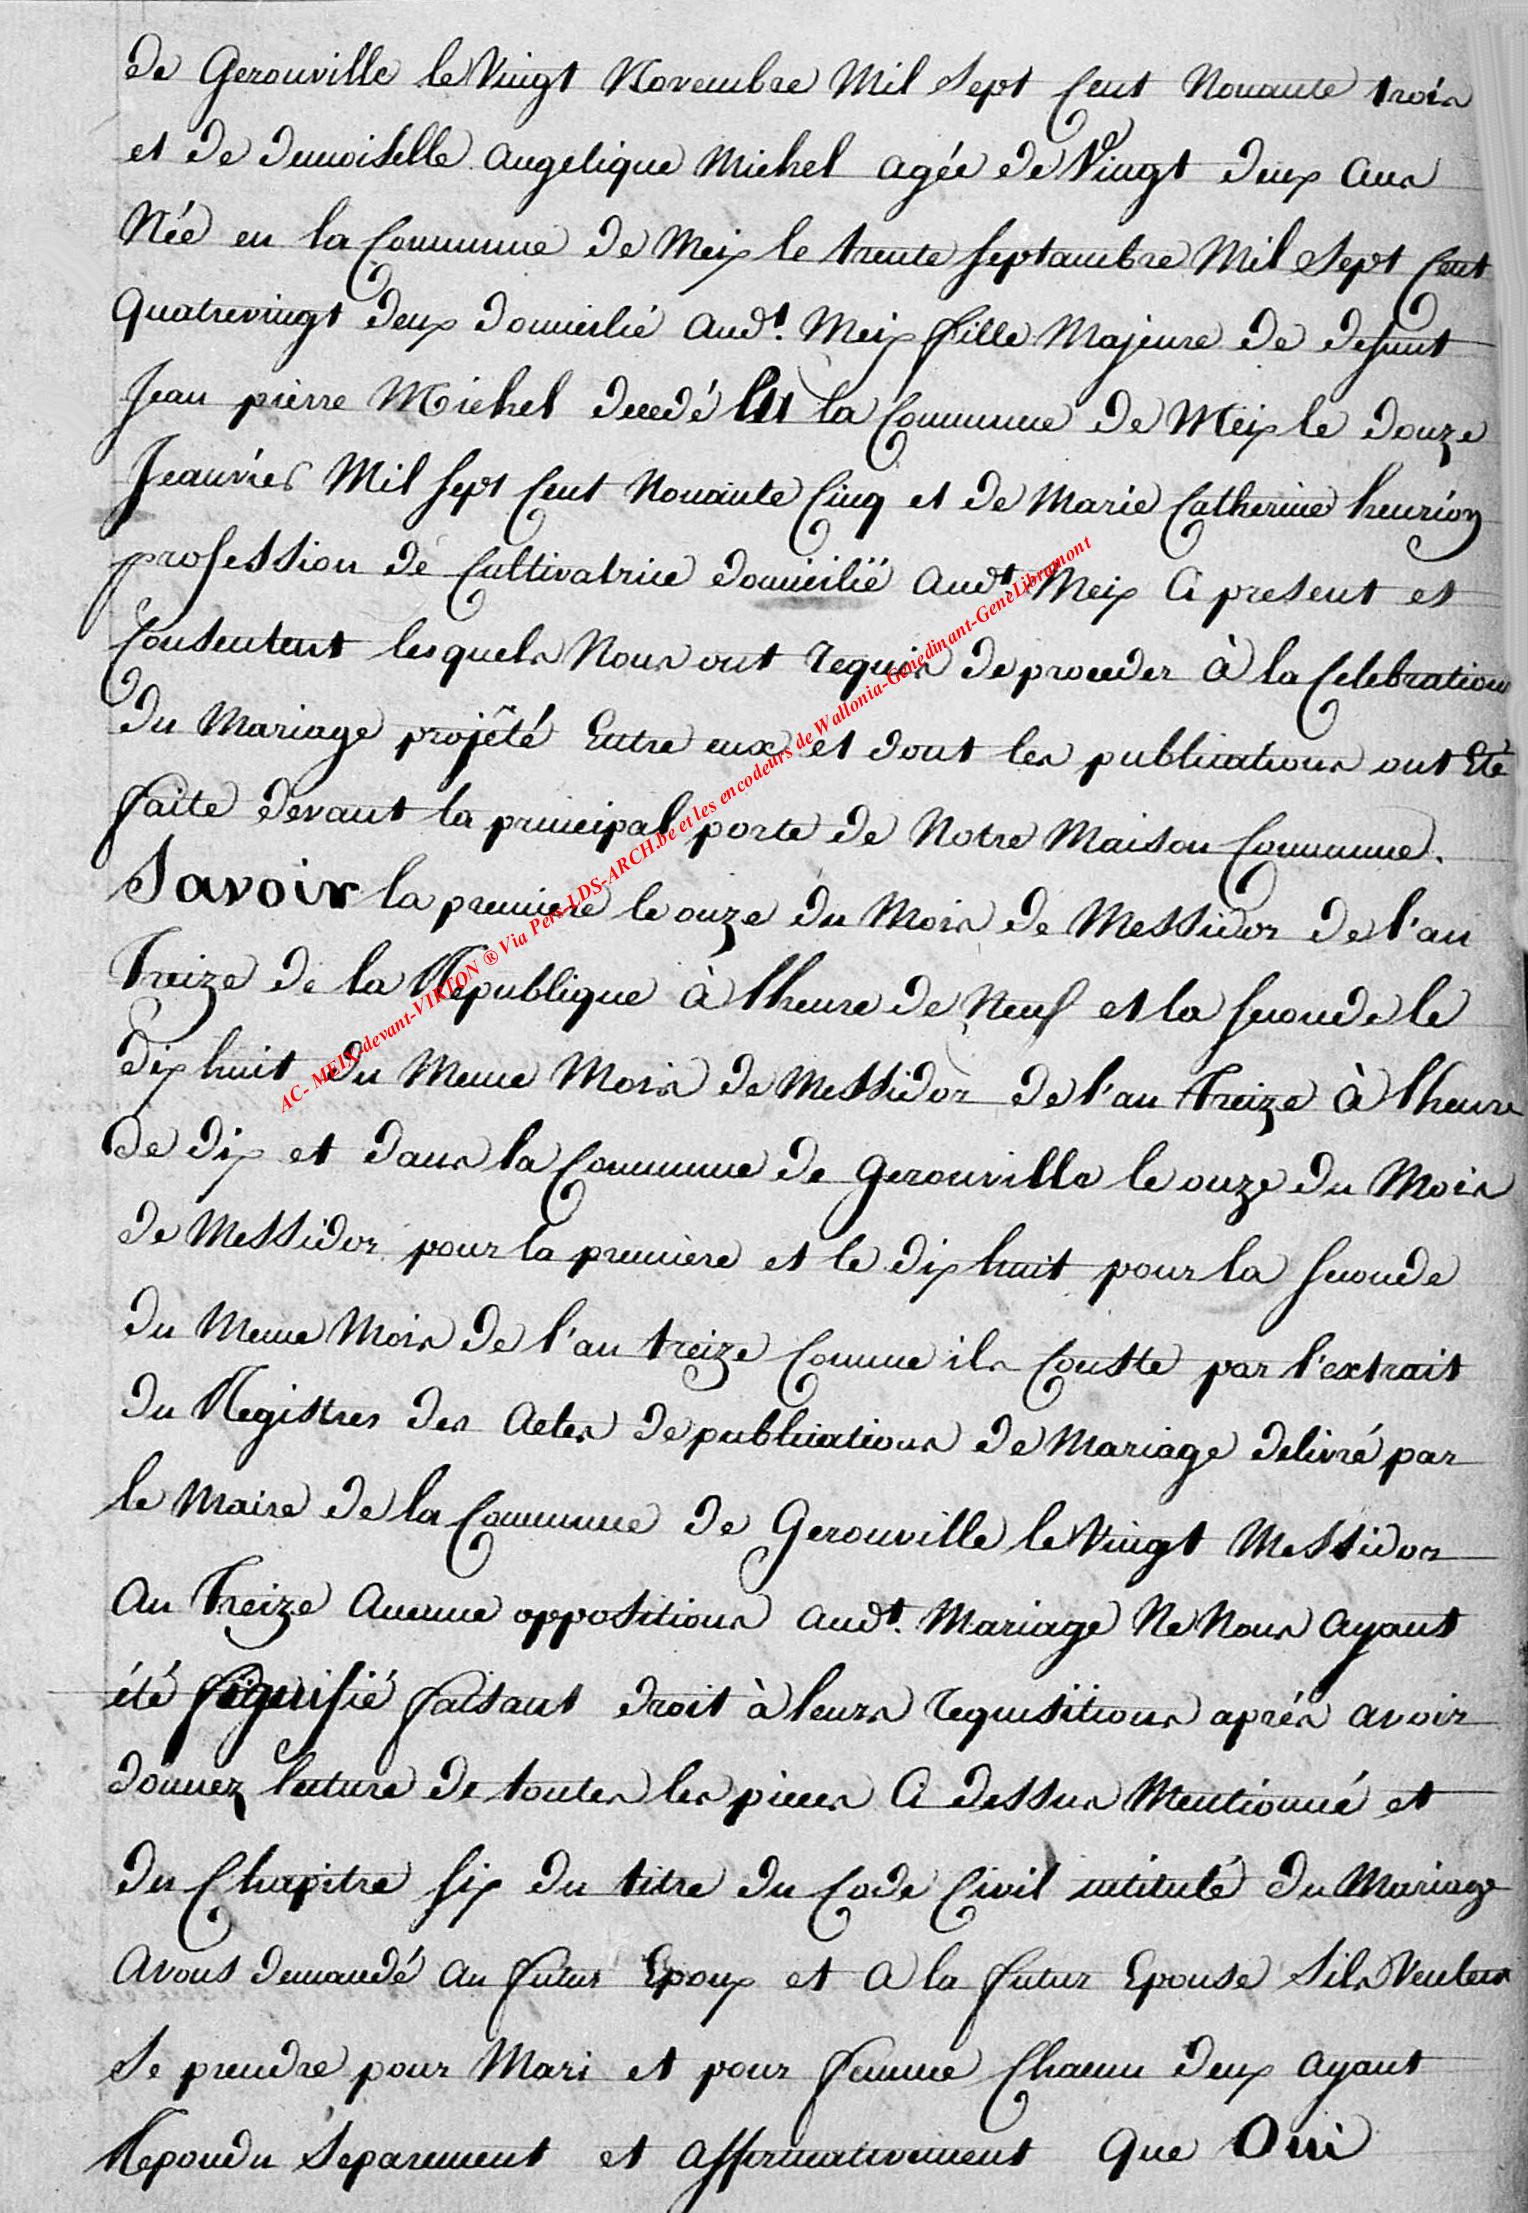 de Gerouville le Vingt Novembre Mil Sept Cent Nonante trois
et de demoiselle angelique Michel agée de Vingt deux ans
Née en la Commune de Meix le trente septambre Mil Sept Cent
quatrevingt deux domicilié audt. Meix fille Majeure de defunt
Jean pierre Michel decedé en la Commune de Meix le douze
Jeanvier Mil sept Cent Nonante Cinq et de Marie Catherine henrion
profession de Cultivatrice domicilié audt. Meix Ci present et
Consentent lesquels Nous ont requis de proceder à la Celebration
du Mariage projété Entre eux et dont les publications ont Eté
faite devant la principal porte de Notre Maison Commune.
Savoir la premiere le onze du Mois de Messidor de l'an
Treize de la Republique à lheure de Neuf et la seconde le
dix huit du Meme Mois de Messidor de l'an treize à lheure
de dix et dans la Commune de Gerouville le onze du Mois
de Messidor pour la premiere et le dix huit pour la seconde
du Meme Mois de l'an treize Comme ils Conste par l'extrait
du Registres des Actes de publications de Mariage delivré par
le Maire de la Commune de Gerouville le Vingt Messidor
an Treize Aucune oppositions audt. Mariage Ne Nous ayant
été signifié faisant droit à leurs requisitions aprés avoir
donnez lecture de toutes les pieces Ci dessus Mentionné et
du Chapitre six du titre du Code Civil intitulé du Mariage
avons demandé au futur Epoux et a la futur Epouse Sils Veulent
Se prendre pour Mari et pour femme Chacun deux ayant
Repondu Separement et affirmativement que Oui
AC- MEIX-devant-VIRTON ® Via Pers-LDS-ARCH.be et les encodeurs de Wallonia-Genedinant-GeneLibramont